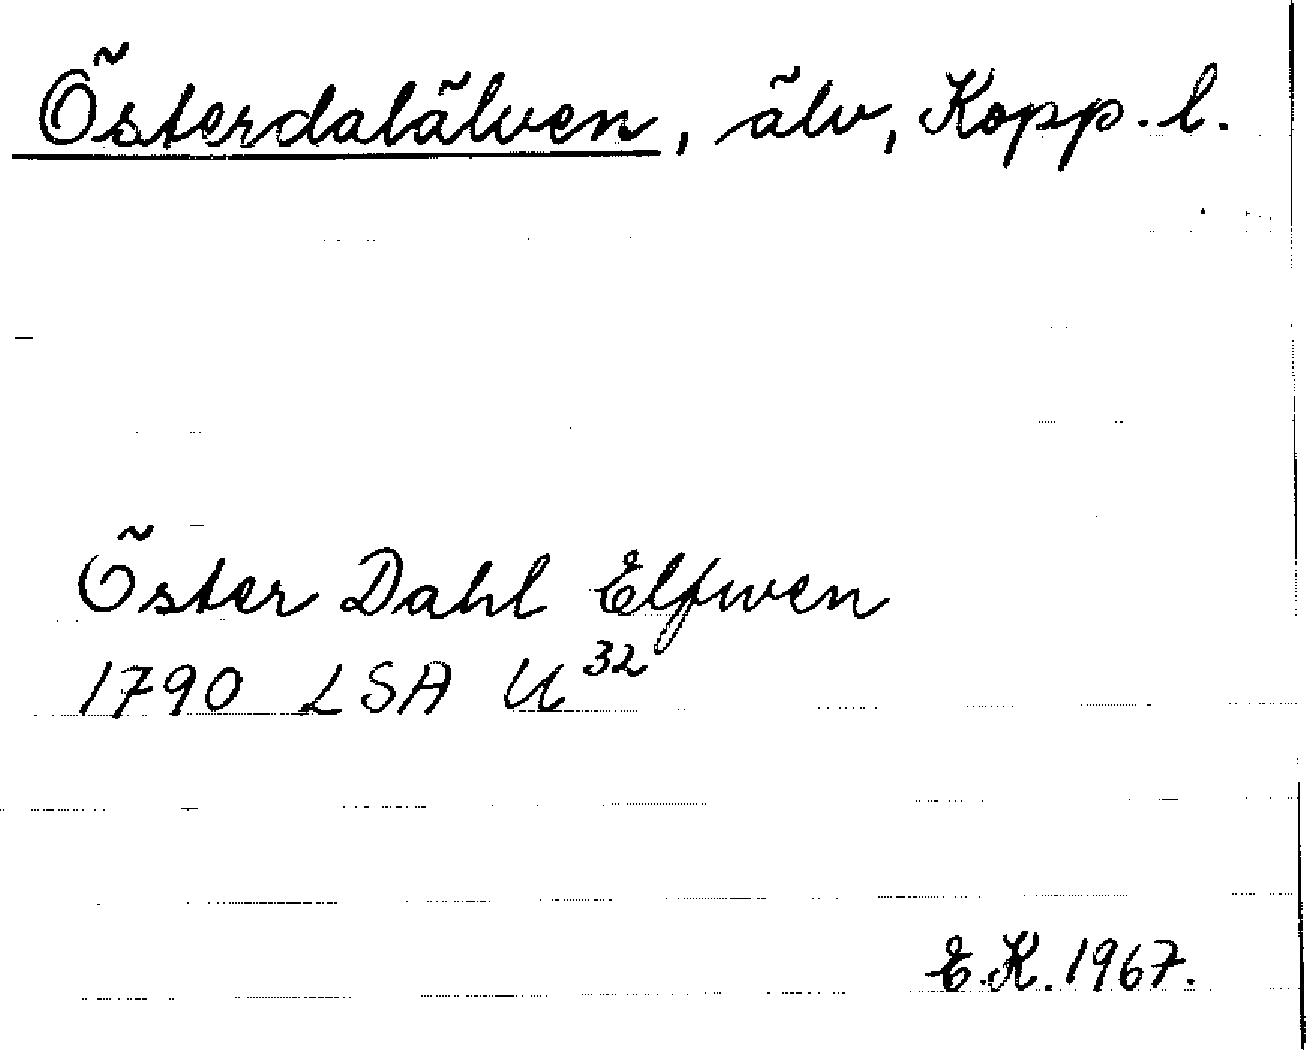 Österdalälven, älv, Kopp. l.
Öster Dahl Elfwen
1790 LSA U³²
E.K. 1967.